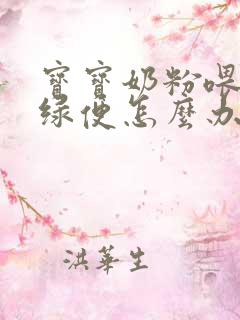 寶寶奶粉喂
綠便怎麼办
洪華生